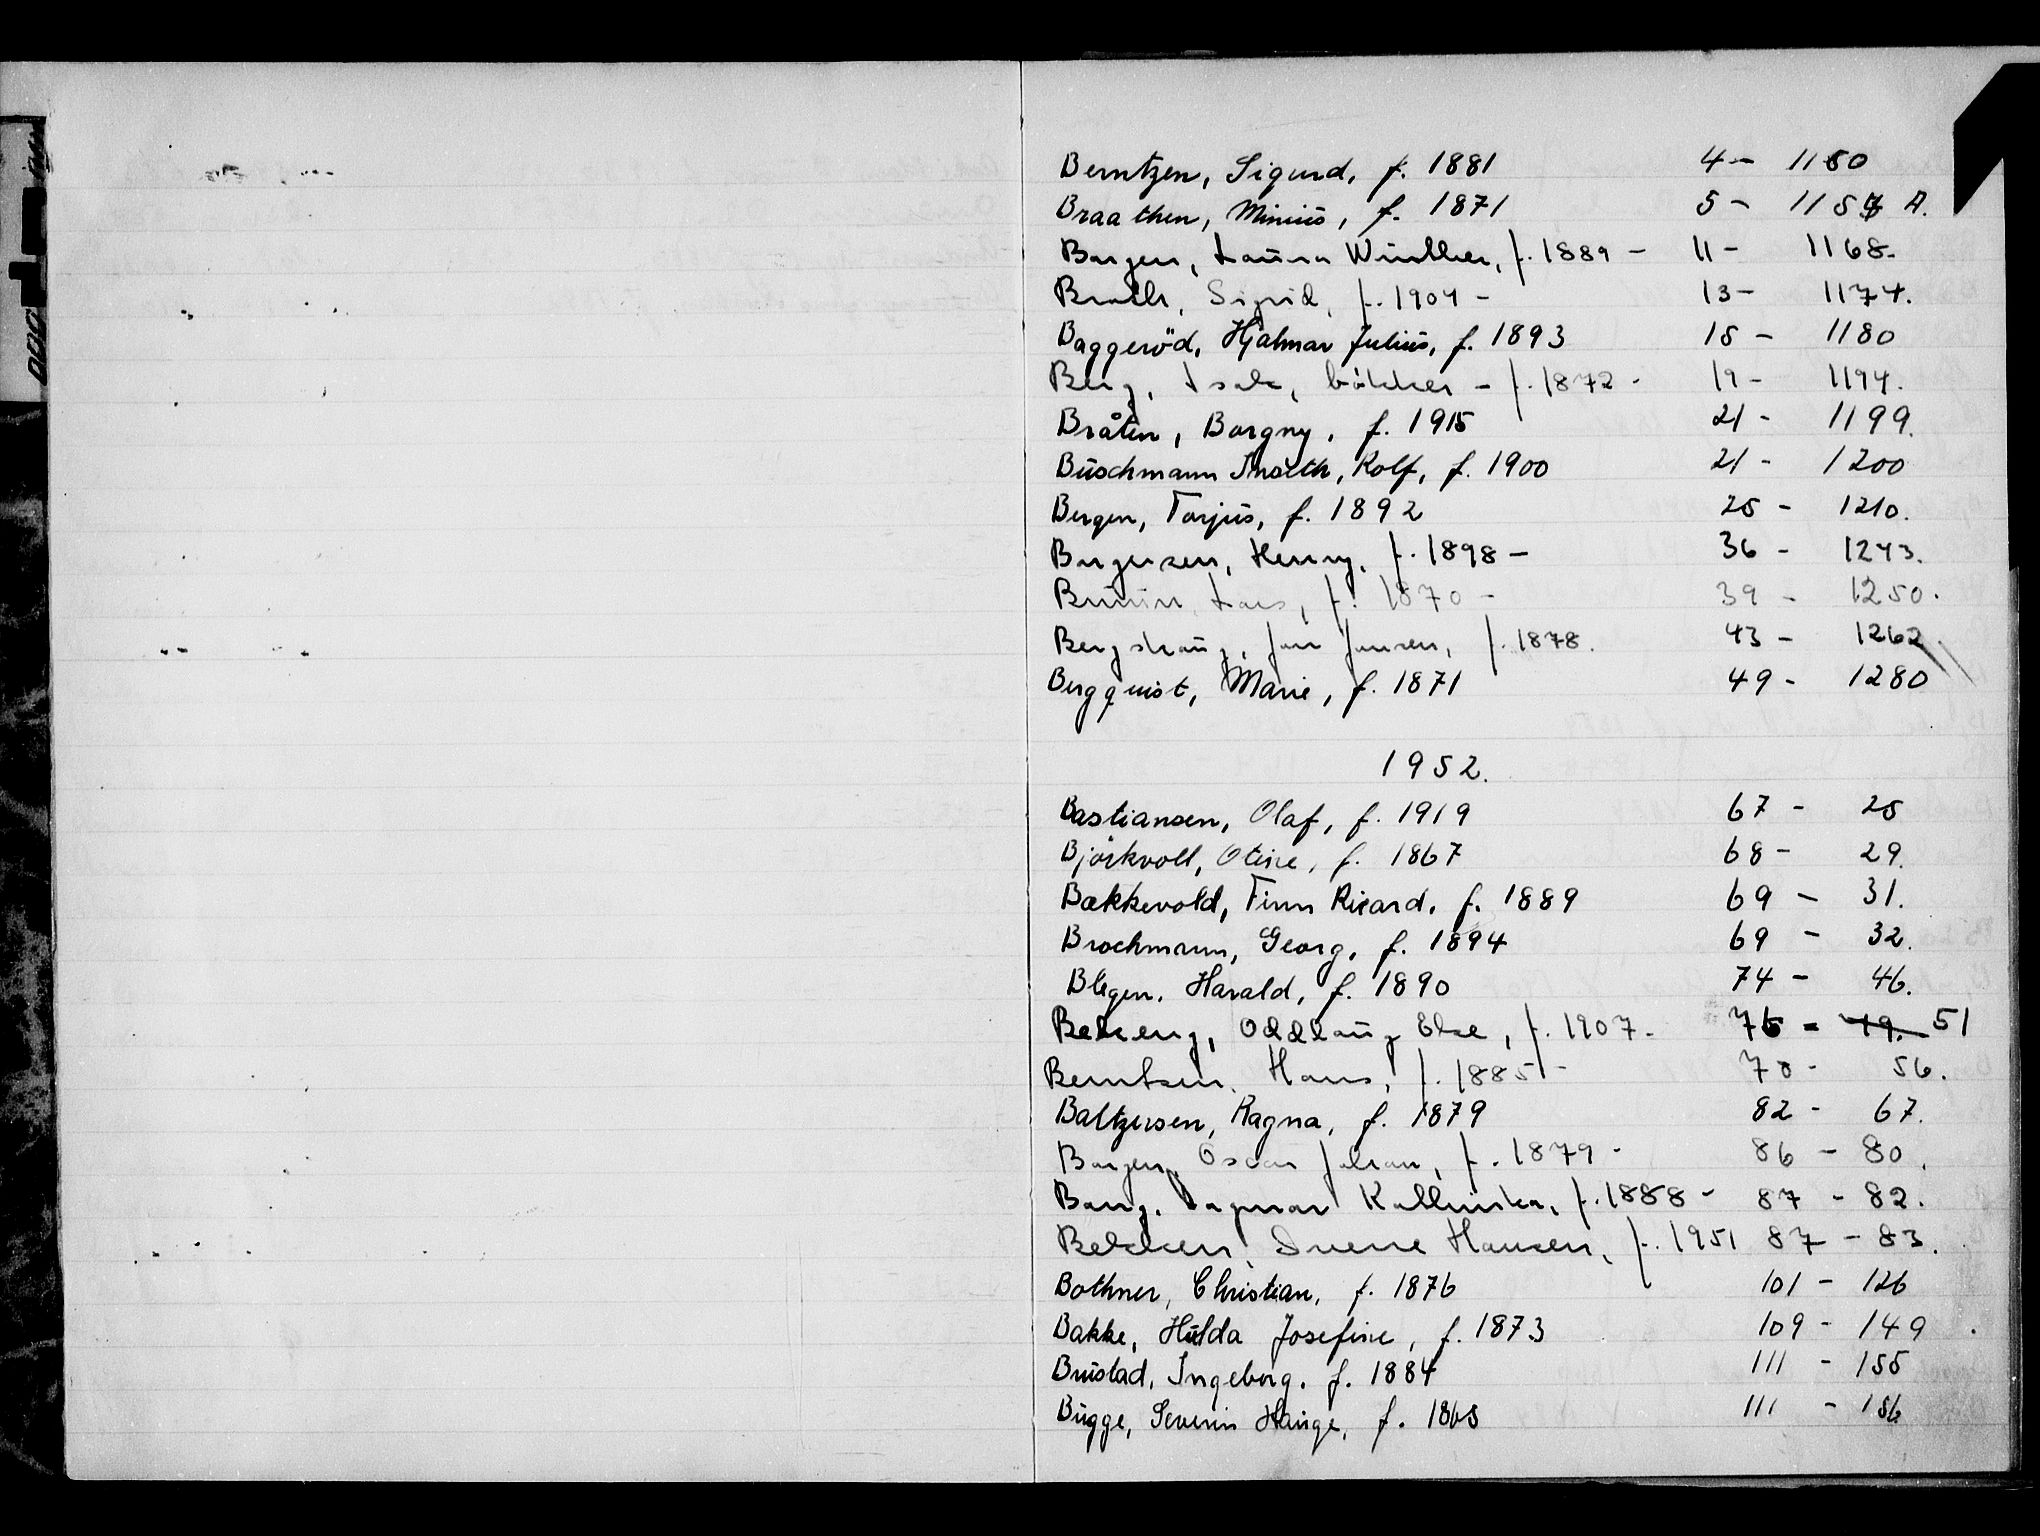 Berntzen, Sigurd, f. 1881 4 - 1150
Braathen, Minius, f. 1871 5 - 1157 A.
Borgen, Laura Winther, f. 1889 - 11 - 1168.
Sigrid, f. 1904 - 13 - 1174.
Baggeröd, Hjalmar Julius, f. 1893 15 - 1180
Berg, Isak, - f. 1872 - 19 - 1194.
Bråten, Borgny, f. 1915 21 - 1199.
Buschmann Rolf, f. 1900 21 - 1200
Bergen, Torjus, f. 1892 25 - 1210.
Borgersen, Henry, f. 1898 - 36 - 1243.
Lars, f. 1870 - 39 - 1250.
Bergshaug, Jon Jonsen, f. 1878. 43 - 1262
Bergquist, Marie, f. 1871 49 - 1280
1952.
Bastiansen, Olaf, f. 1919 67 - 25
Björkvoll, Otine, f. 1867 68 - 29.
Bækkevold, Finn Ricard, f. 1889 69 - 31.
Brochmann, Georg, f. 1894 69 - 32.
Blegen, Harald, f. 1890 74 - 46.
Oddlaug Else, f. 1907 - 76 - 49. 51
Berntsen, Hans, f. 1885 - 78 - 56.
Baltzersen, Ragna, f. 1879 82 - 67.
Borgen, Oscar Johan, f. 1879 - 86 - 80.
Bang, Dagmar f. 1888 - 87 - 82.
Bekken, Sverre Hansen, f. 1951 87 - 83.
Bothner, Christian, f. 1876 101 - 126
Bakke, Hulda Josefine, f. 1873 109 - 149.
Brustad, Ingeborg, f. 1884 111 - 155
Bugge, Severin Hauge, f. 1868 111 - 156